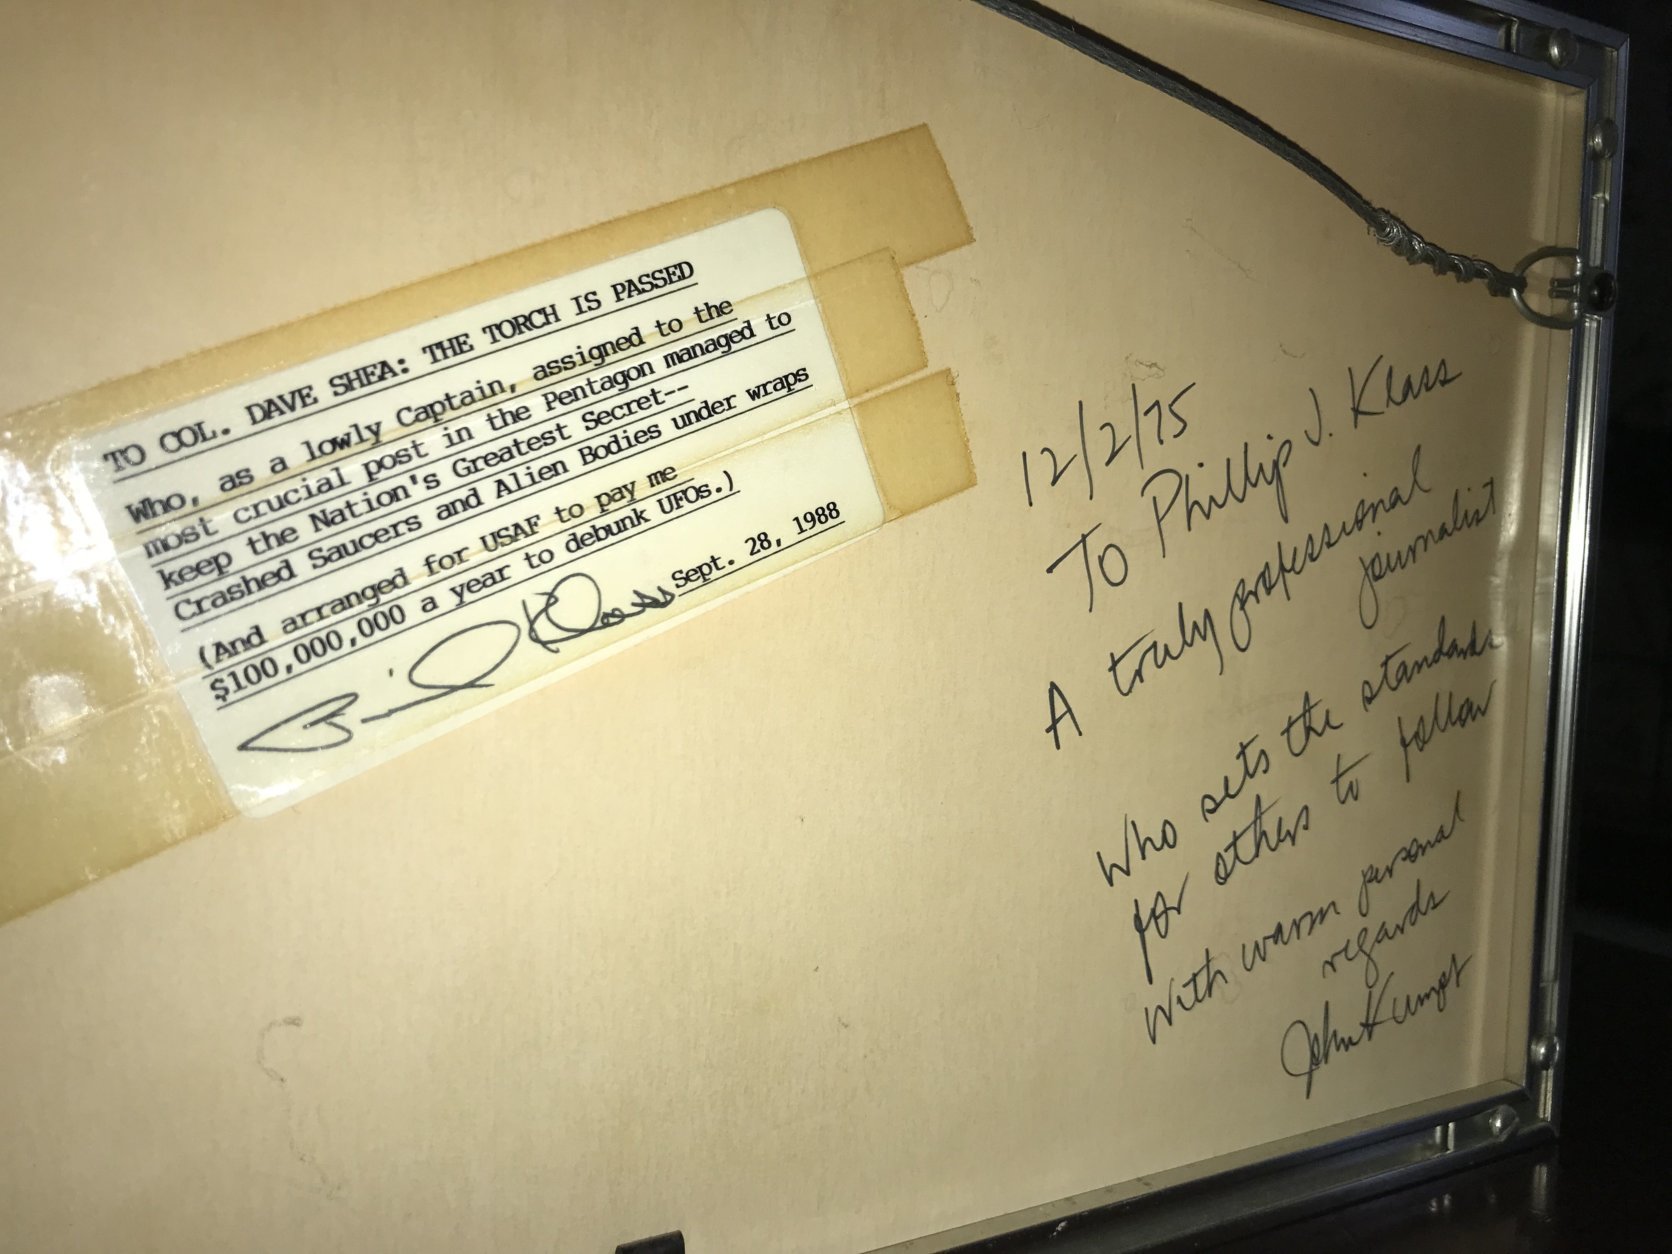 TO COL. DAVE SHEA: THE TORCH IS PASSED
Who, as a lowly Captain, assigned to the
most crucial post in the Pentagon managed to
keep the Nation's Greatest Secret--
Crashed Saucers and Alien Bodies under wraps
(And arranged for USAF to pay me
$100,000,000 a year to debunk UFOs.)
Klass Sept. 28, 1988
12/2/75
To Phillip J. Klass
A truly professional
journalist
Who sets the standards
for others to follow
With warm personal
regards
John Kumpf